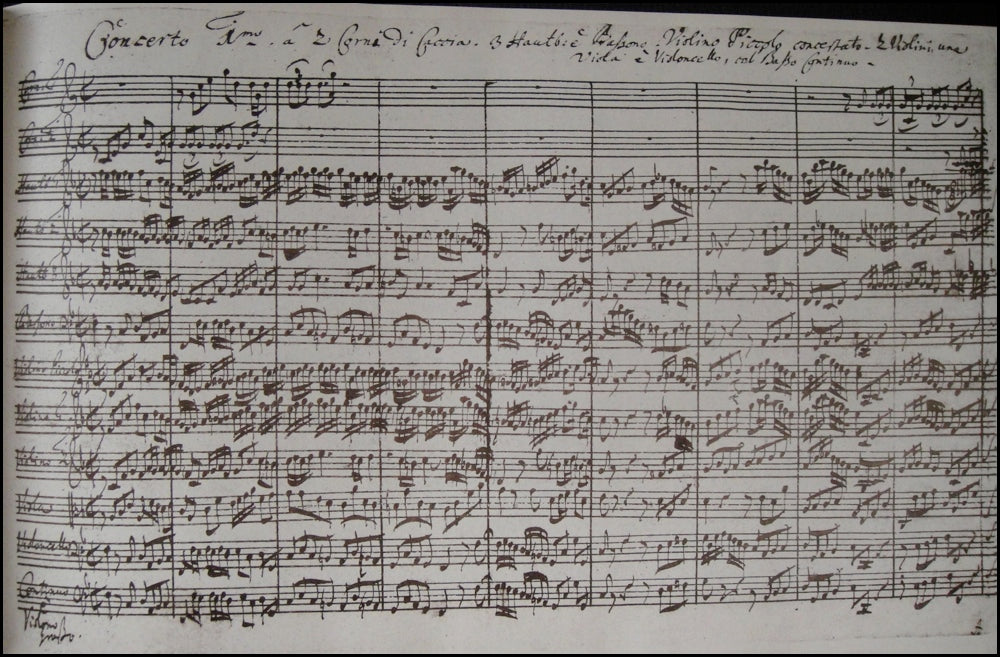 Concerto 1mo. à 2 Corni di Caccia. 3 Hautb: è Bassono. Violino Piccolo concertato. 2 Violini, una
Viola è Violoncello, col Basso Continuo.
Corno 1
Corno 2
Hautb 1
Hautb 2
Hautb 3
Bassono
Violino Piccolo
Violino 1
Violino 2
Viola
Violoncello
Continuo
Violono
grosso.